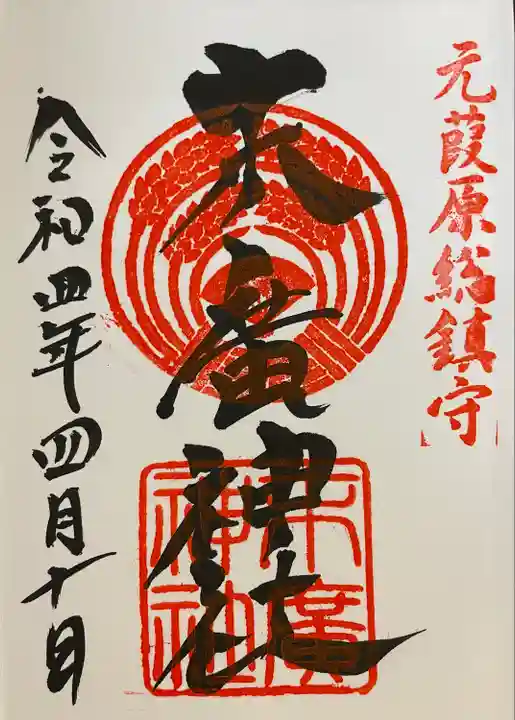 元葭原総鎮守
末廣神社
末廣神社
令和四年四月十日